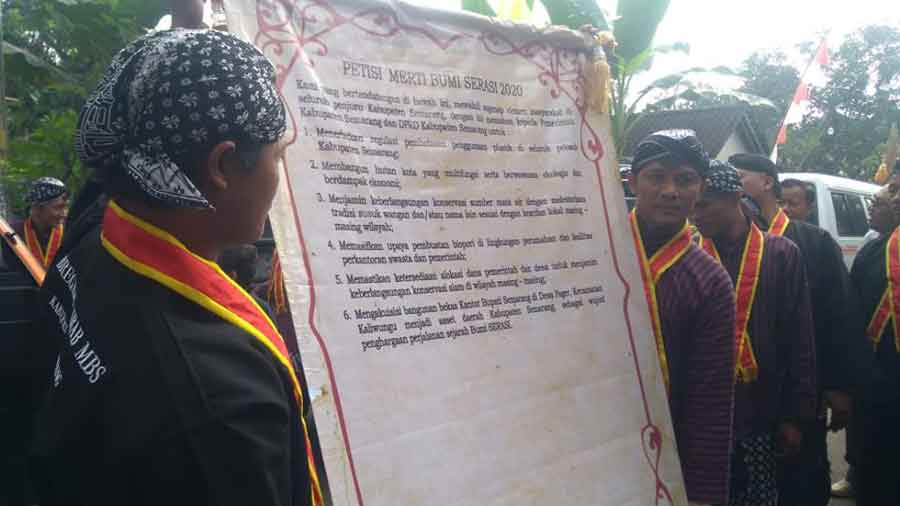 PETISI MERTI BUMI SERASI 2020
Kami yang bertandatangan di bawah ini, mewakili segenap elemen masyarakat di
seluruh penjuru Kabupaten Semarang, dengan ini menuntut kepada Pemerintah
Kabupaten Semarang dan DPRD Kabupaten Semarang untuk :
1. Menerbitkan regulasi pembatasan penggunaan plastik di seluruh
Kabupaten Semarang;
2. Membangun hutan kota yang multifungsi serta berwawasan ekologis dan
berdampak ekonomi;
3. Menjamin keberlangsungan konservasi sumber mata air dengan
tradisi susuk wangan dan/atau nama lain sesuai dengan kearifan lokal masing -
masing wilayah;
4. Memasifkan upaya pembuatan biopori di lingkungan perumahan dan fasilitas
perkantoran swasta dan pemerintah;
5. Memastikan ketersediaan alokasi dana pemerintah dan desa untuk menjamin
keberlangsungan konservasi alam di wilayah masing - masing;
6. Mengakuisisi bangunan bekas Kantor Bupati Semarang di Desa Pager, Kecamatan
Kaliwungu menjadi asset daerah Kabupaten Semarang, sebagai wujud
penghargaan perjalanan sejarah Bumi SERASI.
MBS